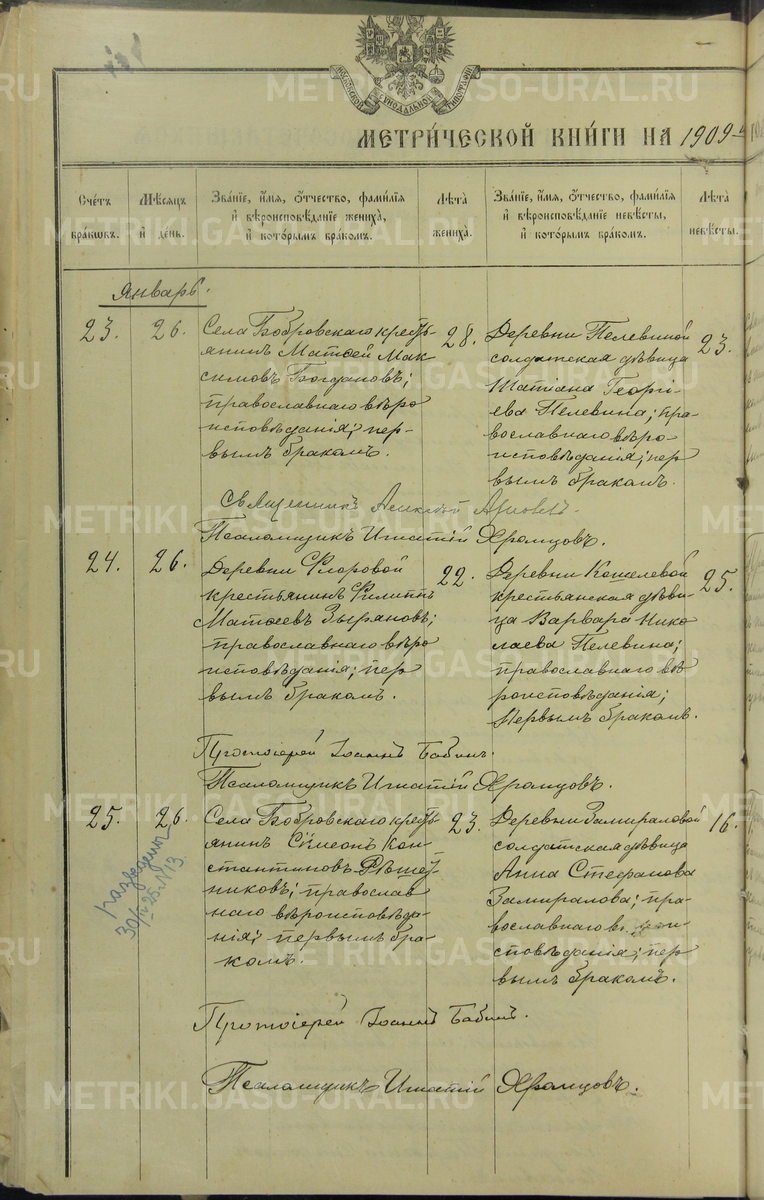 МОСКОВСКОЙ СѴНОДАЛЬНОЙ ТИПОГРАФІИ
МЕТРИ́ЧЕСКОЙ КНИ́ГИ НА 1909-й
Сче́тъ бра́кшвъ.
Мѣ́сяцъ и҆ де́нь.
Зва́нїе, и҆́мѧ, ѻ҆́тчество, фами́лїѧ
и҆ вѣроисповѣ́данїе жениха̀,
и҆ кото́рымъ бра́комъ.
Лѣ́та жениха̀.
Зва́нїе, и҆́мѧ, ѻ҆́тчество, фами́лїѧ
и҆ вѣроисповѣ́данїе невѣ́сты,
и҆ кото́рымъ бра́комъ.
Лѣ́та невѣ́сты.
Январь.
23. 26.
Села Бобровскаго кресть-
янинъ Матѳей Мак-
симовъ Богдановъ;
православнаго вѣро
исповѣданія; пер-
вымъ бракомъ.
28.
Деревни Пелевиной
солдатская дѣвица
Татіана Георгі-
ева Пелевина; пра-
вославнаго вѣро-
исповѣданія; пер
вымъ бракомъ.
23.
Священникъ Алексѣй
Псаломщикъ Игнатій Храмцовъ.
24. 26.
Деревни Флоровой
крестьянинъ Филиппъ
Матѳеевъ Зыряновъ;
православнаго вѣро
исповѣданія; пер
вымъ бракомъ.
22.
Деревни Кошелевой
крестьянская дѣви-
ца Варвара Нико
лаева Пелевина;
православнаго вѣ
роисповѣданія;
первымъ бракомъ.
25.
Протоіерей Іоаннъ Бабинъ.
Псаломщикъ Игнатій Храмцовъ.
25. 26.
разведены
30/IV 25. N 13.
Села Бобровскаго кресть-
янинъ Сѵмеонъ Кон-
стантиновъ Рѣшет-
никовъ; православ
наго вѣроисповѣда-
нія; первымъ бра-
комъ.
23.
Деревни Замираловой
солдатская дѣвица
Анна Стефанова
Замиралова; пра-
вославнаго
сповѣданія; пер
вымъ бракомъ.
16.
Протоіерей Іоаннъ Бабинъ.
Псаломщикъ Игнатій Храмцовъ.
METRIKI.GASO-URAL.RU